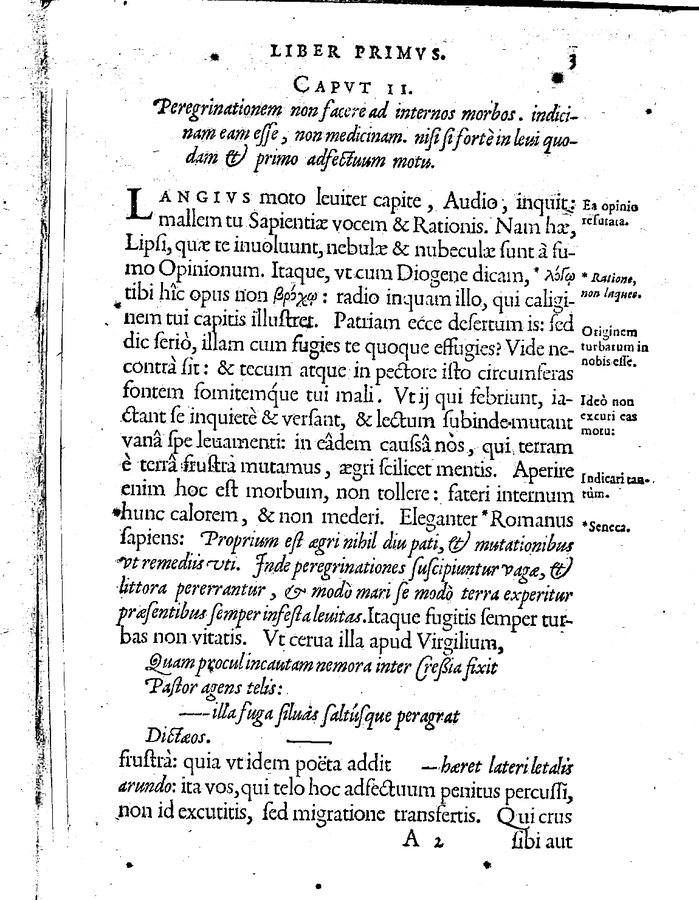 LIBER PRIMVS. 3
CAPVT II.
Peregrinationem non facere ad internos morbos. indici-
nam eam eſſe, non medicinam. niſi ſi fortè in leui quo-
dam & primo adfectuum motu.
LANGIVS moto leuiter capite, Audio, inquit; Ea opinio
mallem tu Sapientiæ vocem & Rationis. Nam hæ, refutata.
Lipſi, quæ te inuoluunt, nebulæ & nubeculæ ſunt à fu-
mo Opinionum. Itaque, vt cum Diogene dicam, * λόγῳ * Ratione,
tibi hîc opus non βρόχῳ: radio inquam illo, qui caligi- non laqueo.
nem tui capitis illuſtret. Patriam ecce deſertum is: ſed
dic ſeriò, illam cum fugies te quoque effugies? Vide ne- Originem turbarum in
contrà ſit: & tecum atque in pectore iſto circumferas nobis eſſe.
fontem fomitemq́ue tui mali. Vt ij qui febriunt, ia- Ideò non
ctant ſe inquietè & verſant, & lectum ſubinde mutant excuti eas
vanâ ſpe leuamenti: in eâdem cauſſâ nòs, qui terram motu:
è terrâ fruſtrà mutamus, ægri ſcilicet mentis. Aperire
enim hoc eſt morbum, non tollere: fateri internum Indicari tan-
tùm.
hunc calorem, & non mederi. Eleganter * Romanus * Seneca.
ſapiens: Proprium eſt ægri nihil diu pati, & mutationibus
vt remediis vti. Inde peregrinationes ſuſcipiuntur vagæ, &
littora pererrantur, & modò mari ſe modò terra experitur
præſentibus ſemper infeſta leuitas. Itaque fugitis ſemper tur-
bas non vitatis. Vt cerua illa apud Virgilium,
Quam procul incautam nemora inter Creſſia fixit
Paſtor agens telis:
— illa fuga ſiluas ſaltúſque peragrat
Dictæos. —
fruſtrà: quia vt idem poëta addit — hæret lateri letalis
arundo: ita vos, qui telo hoc adfectuum penitus percuſſi,
non id excutitis, ſed migratione transfertis. Qui crus
A 2 ſibi aut